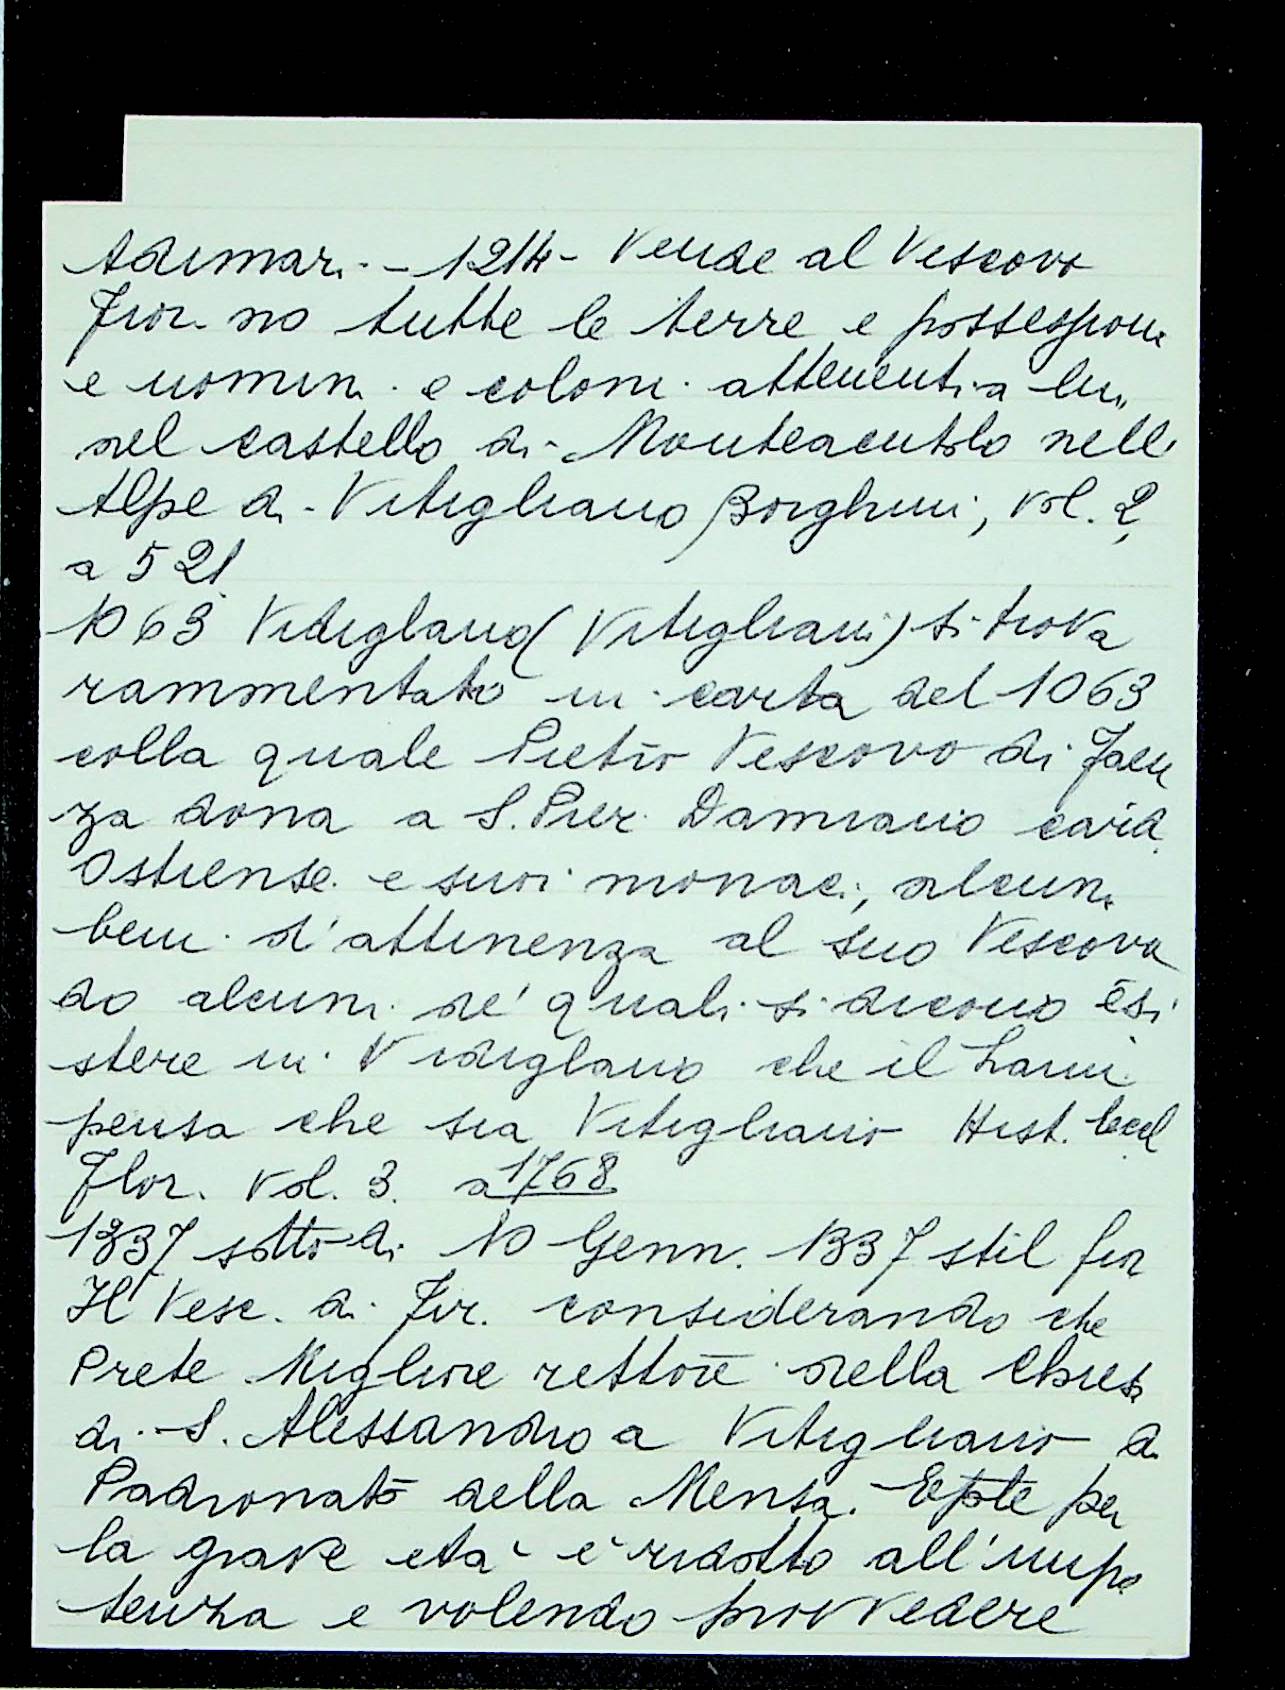 Adimari - 1214 - Vende al Vescovo
Fior.no tutte le terre e possessioni
e uomini e coloni attenenti a lui
nel castello di Monteacutolo nell'
Alpe di Vitigliano Borghini, vol. 2,
a 521.
1063 Vidigliano (Vitigliani) si trova
rammentato in carta del 1063
colla quale Pietro Vescovo di Faen
za dona a S. Pier Damiano card.
Ostiense e suoi monaci, alcuni
beni d'attinenza al suo Vescova
do alcuni de' quali si dicono esi
stere in Vidigliano che il Lami
pensa che sia Vitigliano Hist. Eccl
Flor. vol. 3. a 1768
1337 sotto di 10 Genn. 1337 stil fior
Il Vesc. di Fir. considerando che
Prete Migliore rettore nella Chiesa
di S. Alessandro a Vitigliano di
Padronato della Mensa. Epte per
la grave età è ridotto all'impo
tenza e volendo provvedere